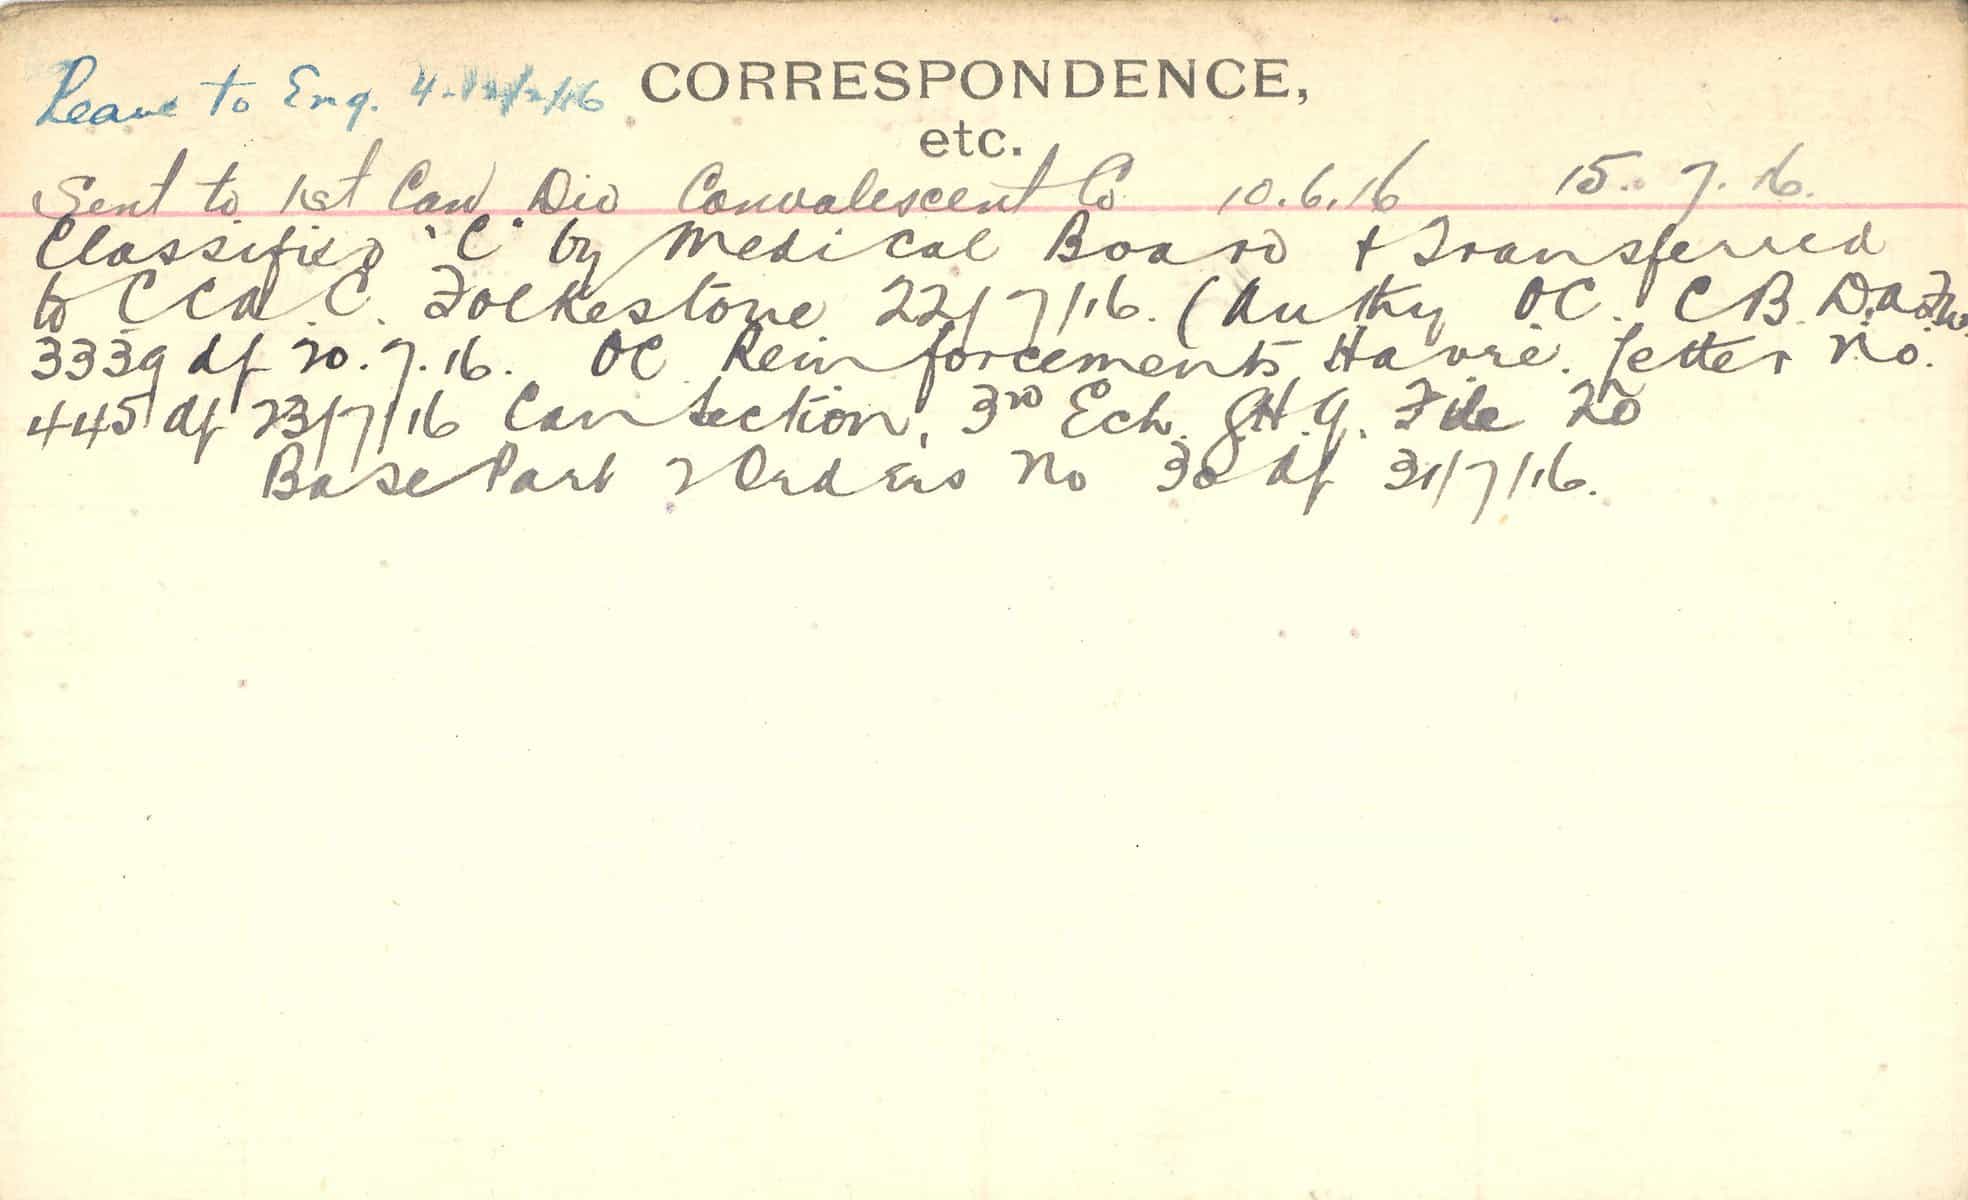 Leave to Eng. 4-12/2/16 CORRESPONDENCE,
etc.
Sent to 1st Can Div Convalescent Co 10.6.16 15.7.16.
Classified "C" by Medical Board & Transferred
to C C A. C. Folkestone 22/7/16. (Authy OC. C B. D.
3339 df 20.7.16. OC Reinforcements Havre. letter No.
445 df 23/7/16 Can Section, 3rd Ech. G.H.Q. File 20
Base Part 2 Orders No 30 df 31/7/16.